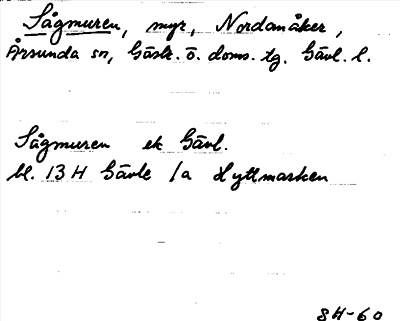 Sågmuren, myr, Nordanåker,
Årsunda sn, Gästr. ö. doms. tg. Gävl. l.
Sågmuren ek Gävl.
bl. 13 H Gävle /a Hyttmarken
8H-60